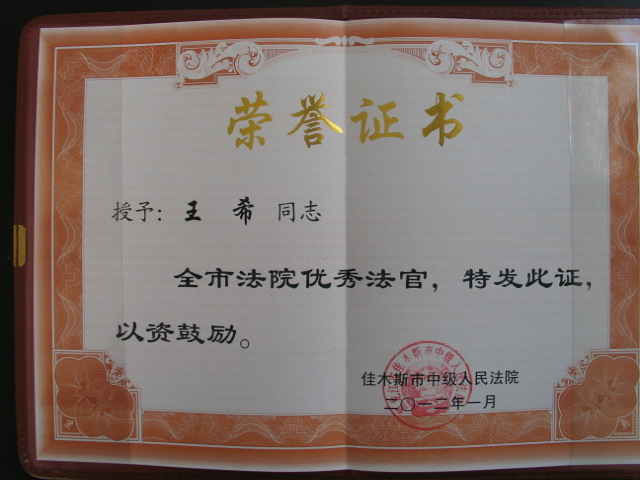 荣誉证书
授予：王 希 同志
全市法院优秀法官，特发此证，
以资鼓励。
佳木斯市中级人民法院
二〇一二年一月